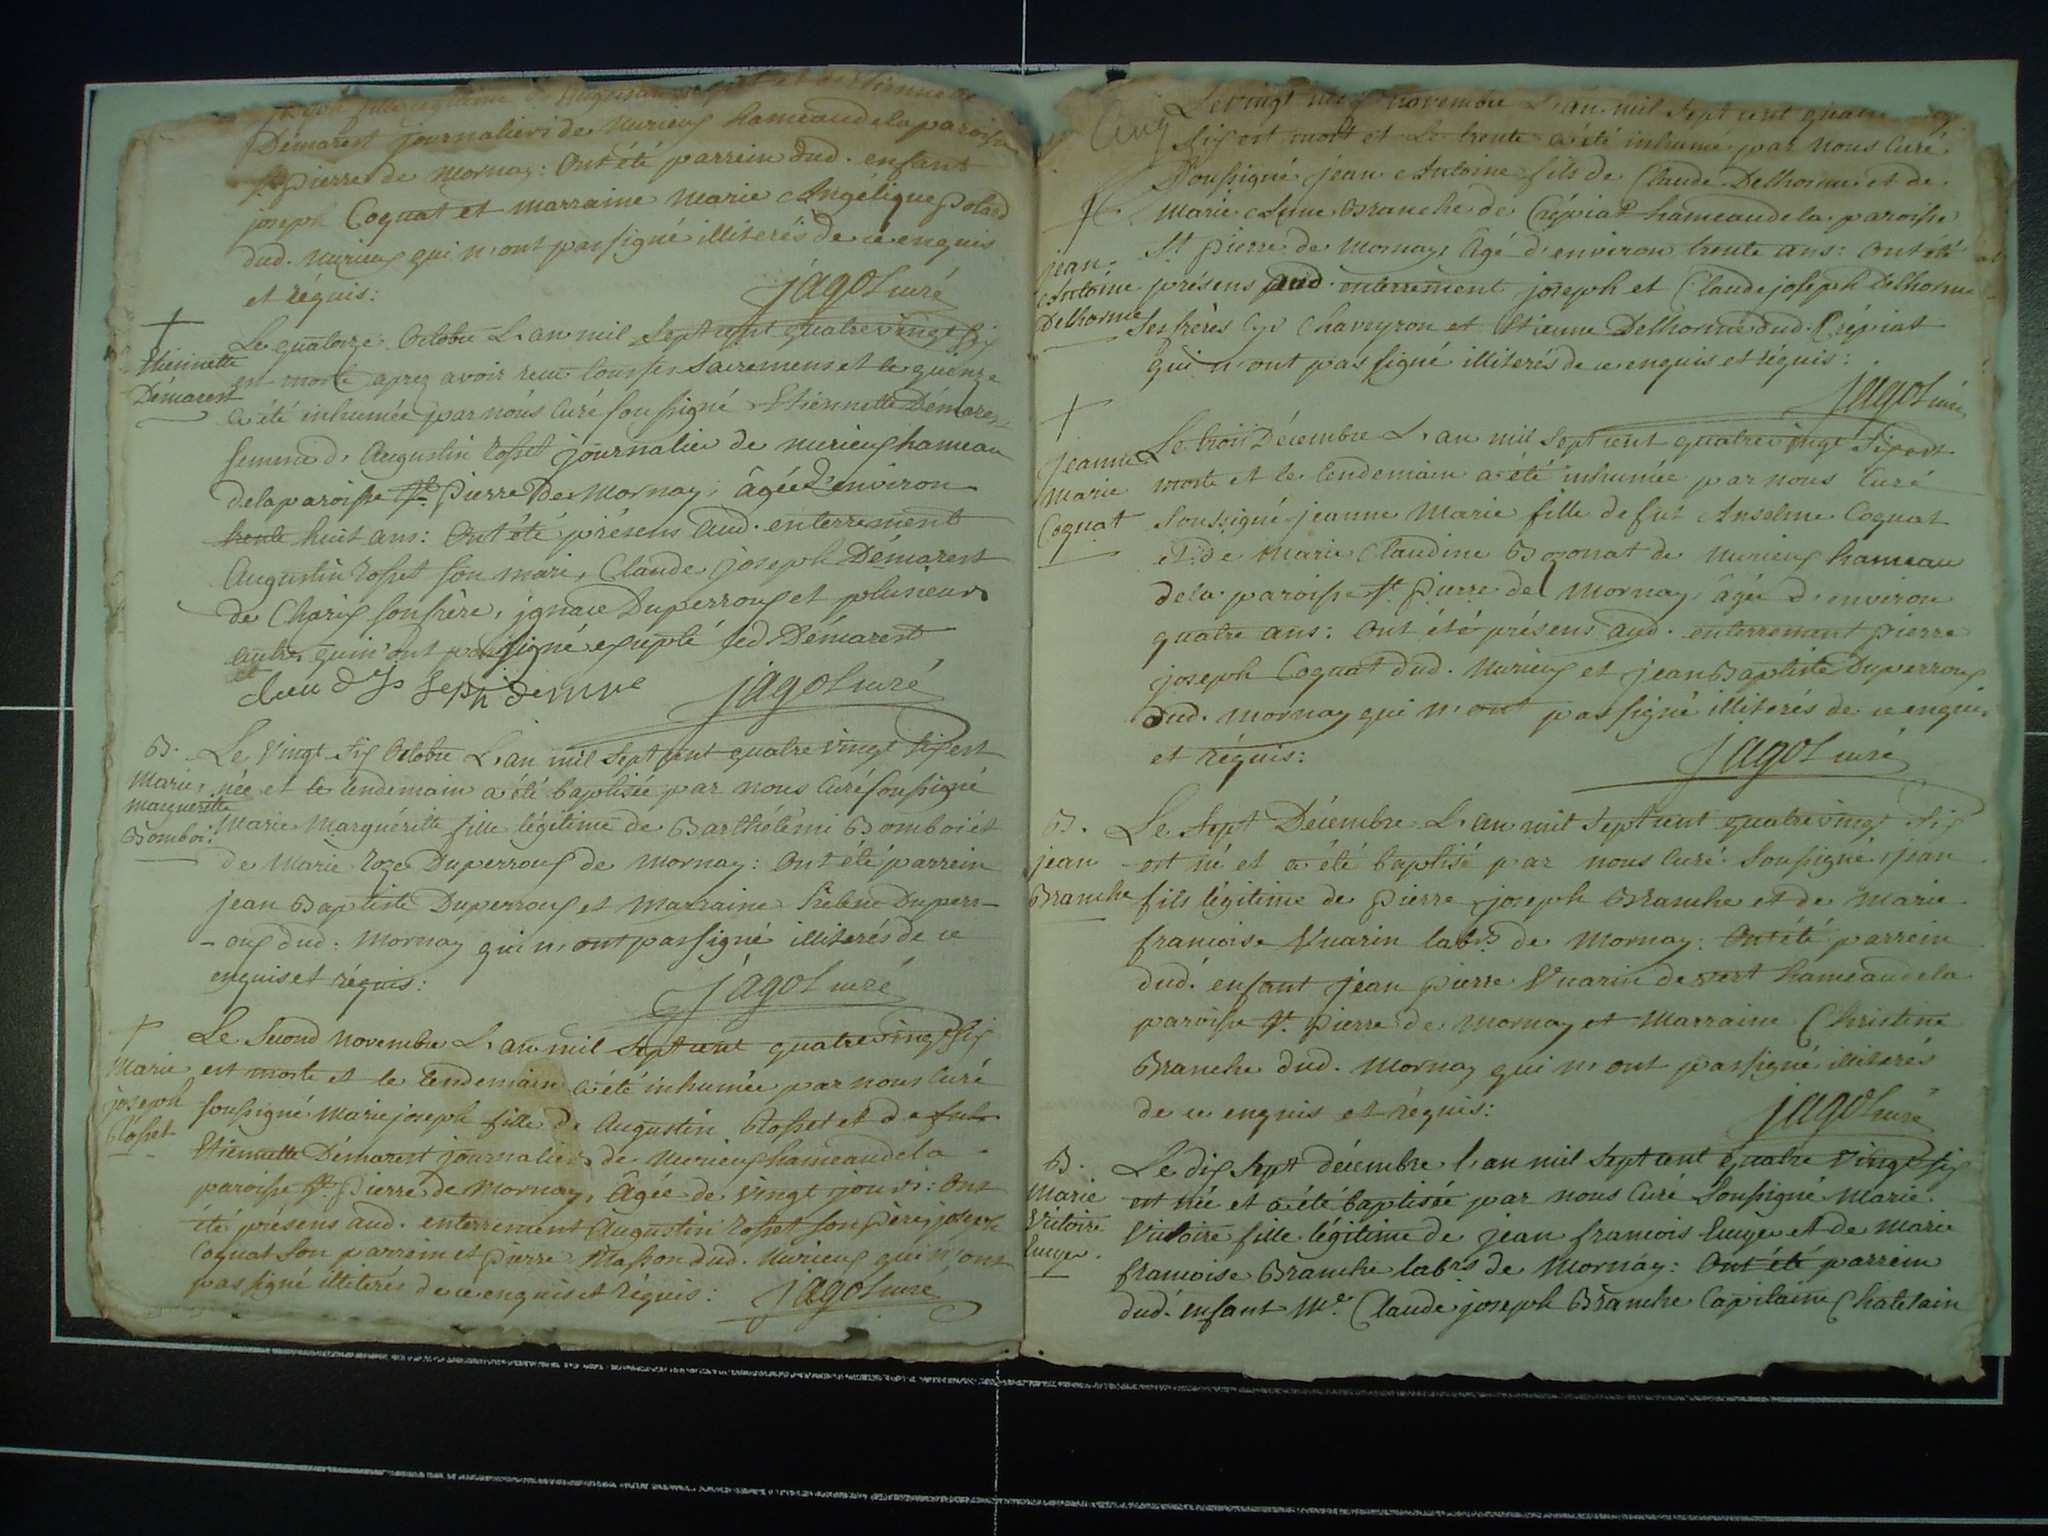 joseph fille légitime d'Augustin Rosset et d'Etiennette
Démarest journaliers de nurieux hameau de la paroisse
St. pierre de Mornay: Ont été parrein dud. enfant
joseph Coquat et marraine Marie Angélique Polard
dud. nurieux qui n'ont pas signé illiterés de ce enquis
et réquis:
jagot curé
†
Etiennette
Démarest
Le quatorze Octobre L'an mil sept cent quatre vingt six
est morte aprez avoir recu tous ses Sacremens et le quinze
a été inhumée par nous Curé soussigné Etiennette Démarest
femme d'Augustin Rosset journalier de nurieux hameau
de la paroisse St. Pierre de Mornay, âgée d'environ
trente huit ans: Ont été présens aud. enterrement
Augustin Rosset son mari, Claude joseph Démarest
de Charix son frère, ignace Duperroux et plusieurs
autres qui n'ont pas signé excepté led. Démarest
jagot curé
B.
Marie
marguerite
Bomboi.
Le Vingt Six Octobre L'an mil sept cent quatre vingt six est
née et le lendemain a été baptisée par nous Curé soussigné
Marie Marguérite fille légitime de Barthélémi Bomboi et
de Marie Roze Duperroux de Mornay: Ont été parrein
jean Baptiste Duperroux et Marraine hélène Duperr-
-oux dud. Mornay qui n'ont pas signé illiterés de ce
enquis et réquis:
jagot curé
†
Marie
joseph
Rosset
Le Second novembre L'an mil sept cent quatre vingt six
est morte et le lendemain a été inhumée par nous Curé
soussigné Marie joseph fille d'Augustin Rosset et de fut
Etiennette Démarest journaliers de Nurieux hameau de la
paroisse St. Pierre de Mornay, âgée de vingt jours: Ont
été présens aud. enterrement Augustin Rosset son père, joseph
Coquat son parrein et pierre Masson dud. Nurieux qui n'ont
pas signé illiterés de ce enquis et réquis:
jagot curé
Cinq
Le vingt neuf novembre L'an mil sept cent quatre vingt
six est mort et le trente a été inhumé par nous Curé
soussigné jean Antoine fils de Claude Delhorme et de
Marie Anne Branche de Crépiat hameau de la paroisse
St. pierre de Mornay âgé d'environ trente ans: Ont été
présens aud. enterrement joseph et Claude joseph Delhorme
ses frères, Chaveyron et Etienne Delhorme dud. Crépiat
qui n'ont pas signé illiterés de ce enquis et réquis:
jagot curé
†
jean
Antoine
Delhorme
†
jeanne
Marie
Coquat
Le trois Décembre L'an mil sept cent quatre vingt six est
morte et le lendemain a été inhumée par nous Curé
soussigné jeanne Marie fille de fut Anselme Coquat
et de Marie Claudine Bozonat de nurieux hameau
de la paroisse St. Pierre de Mornay âgée d'environ
quatre ans: Ont été présens aud. enterrement pierre
joseph Coquat dud. Nurieux et jean Baptiste Duperroux
dud. Mornay qui n'ont pas signé illiterés de ce enquis
et réquis:
jagot curé
B.
jean
Branche
Le sept Décembre L'an mil sept cent quatre vingt six
est né et a été baptisé par nous Curé soussigné jean
fils légitime de Pierre joseph Branche et de Marie
francoise Vuarin labrs. de Mornay: Ont été parrein
dud. enfant jean pierre Vuarin de vert hameau de la
paroisse St. Pierre de Mornay et Marraine Christine
Branche dud. Mornay qui n'ont pas signé illiterés
de ce enquis et réquis:
jagot curé
B.
Marie
Victoire
Emye.
Le dix sept décembre l'an mil sept cent quatre vingt six
est née et a été baptisée par nous Curé soussigné Marie
Victoire fille légitime de jean francois Emye et de Marie
francoise Branche labrs de Mornay: Ont été parrein
dud. enfant Me. Claude joseph Branche Capitaine Chatelain